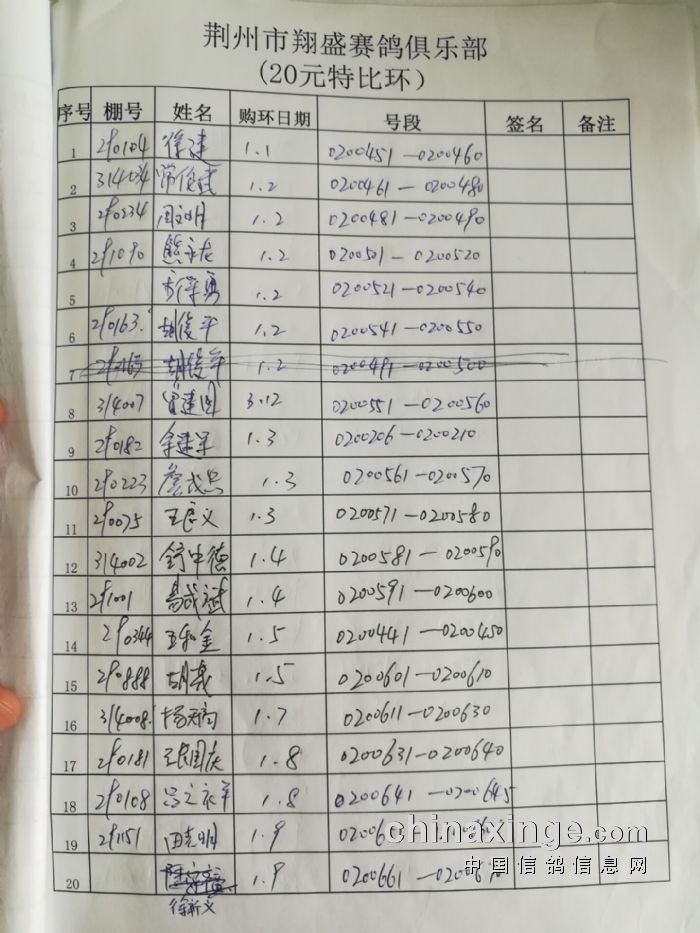 荆州市翔盛赛鸽俱乐部
(20元特比环)
序号 棚号 姓名 购环日期 号段 签名 备注
1 290104 徐建 1.1 0200451—0200460
2 314034 常俊斌 1.2 0200461—0200480
3 290234 周文明 1.2 0200481—0200490
4 291090 熊永龙 1.2 0200501—0200520
5 1.2 0200521—0200540
6 290163 胡俊平 1.2 0200541—0200550
7 290163 胡俊平 1.2 0200491—0200500
8 314007 建国 3.12 0200551—0200560
9 290182 余建军 1.3 0200206—0200210
10 290223 詹成兵 1.3 0200561—0200570
11 290075 王启义 1.3 0200571—0200580
12 314002 舒中德 1.4 0200581—0200590
13 291001 易成斌 1.4 0200591—0200600
14 290344 王和金 1.5 0200441—0200450
15 290888 胡 1.5 0200601—0200610
16 314008 杨 1.7 0200611—0200630
17 290181 国庆 1.8 0200631—0200640
18 290108 1.8 0200641—0200645
19 291151 田克明 1.9
20 1.9 0200661—
徐新义
chinaxinge.com
中国信鸽信息网